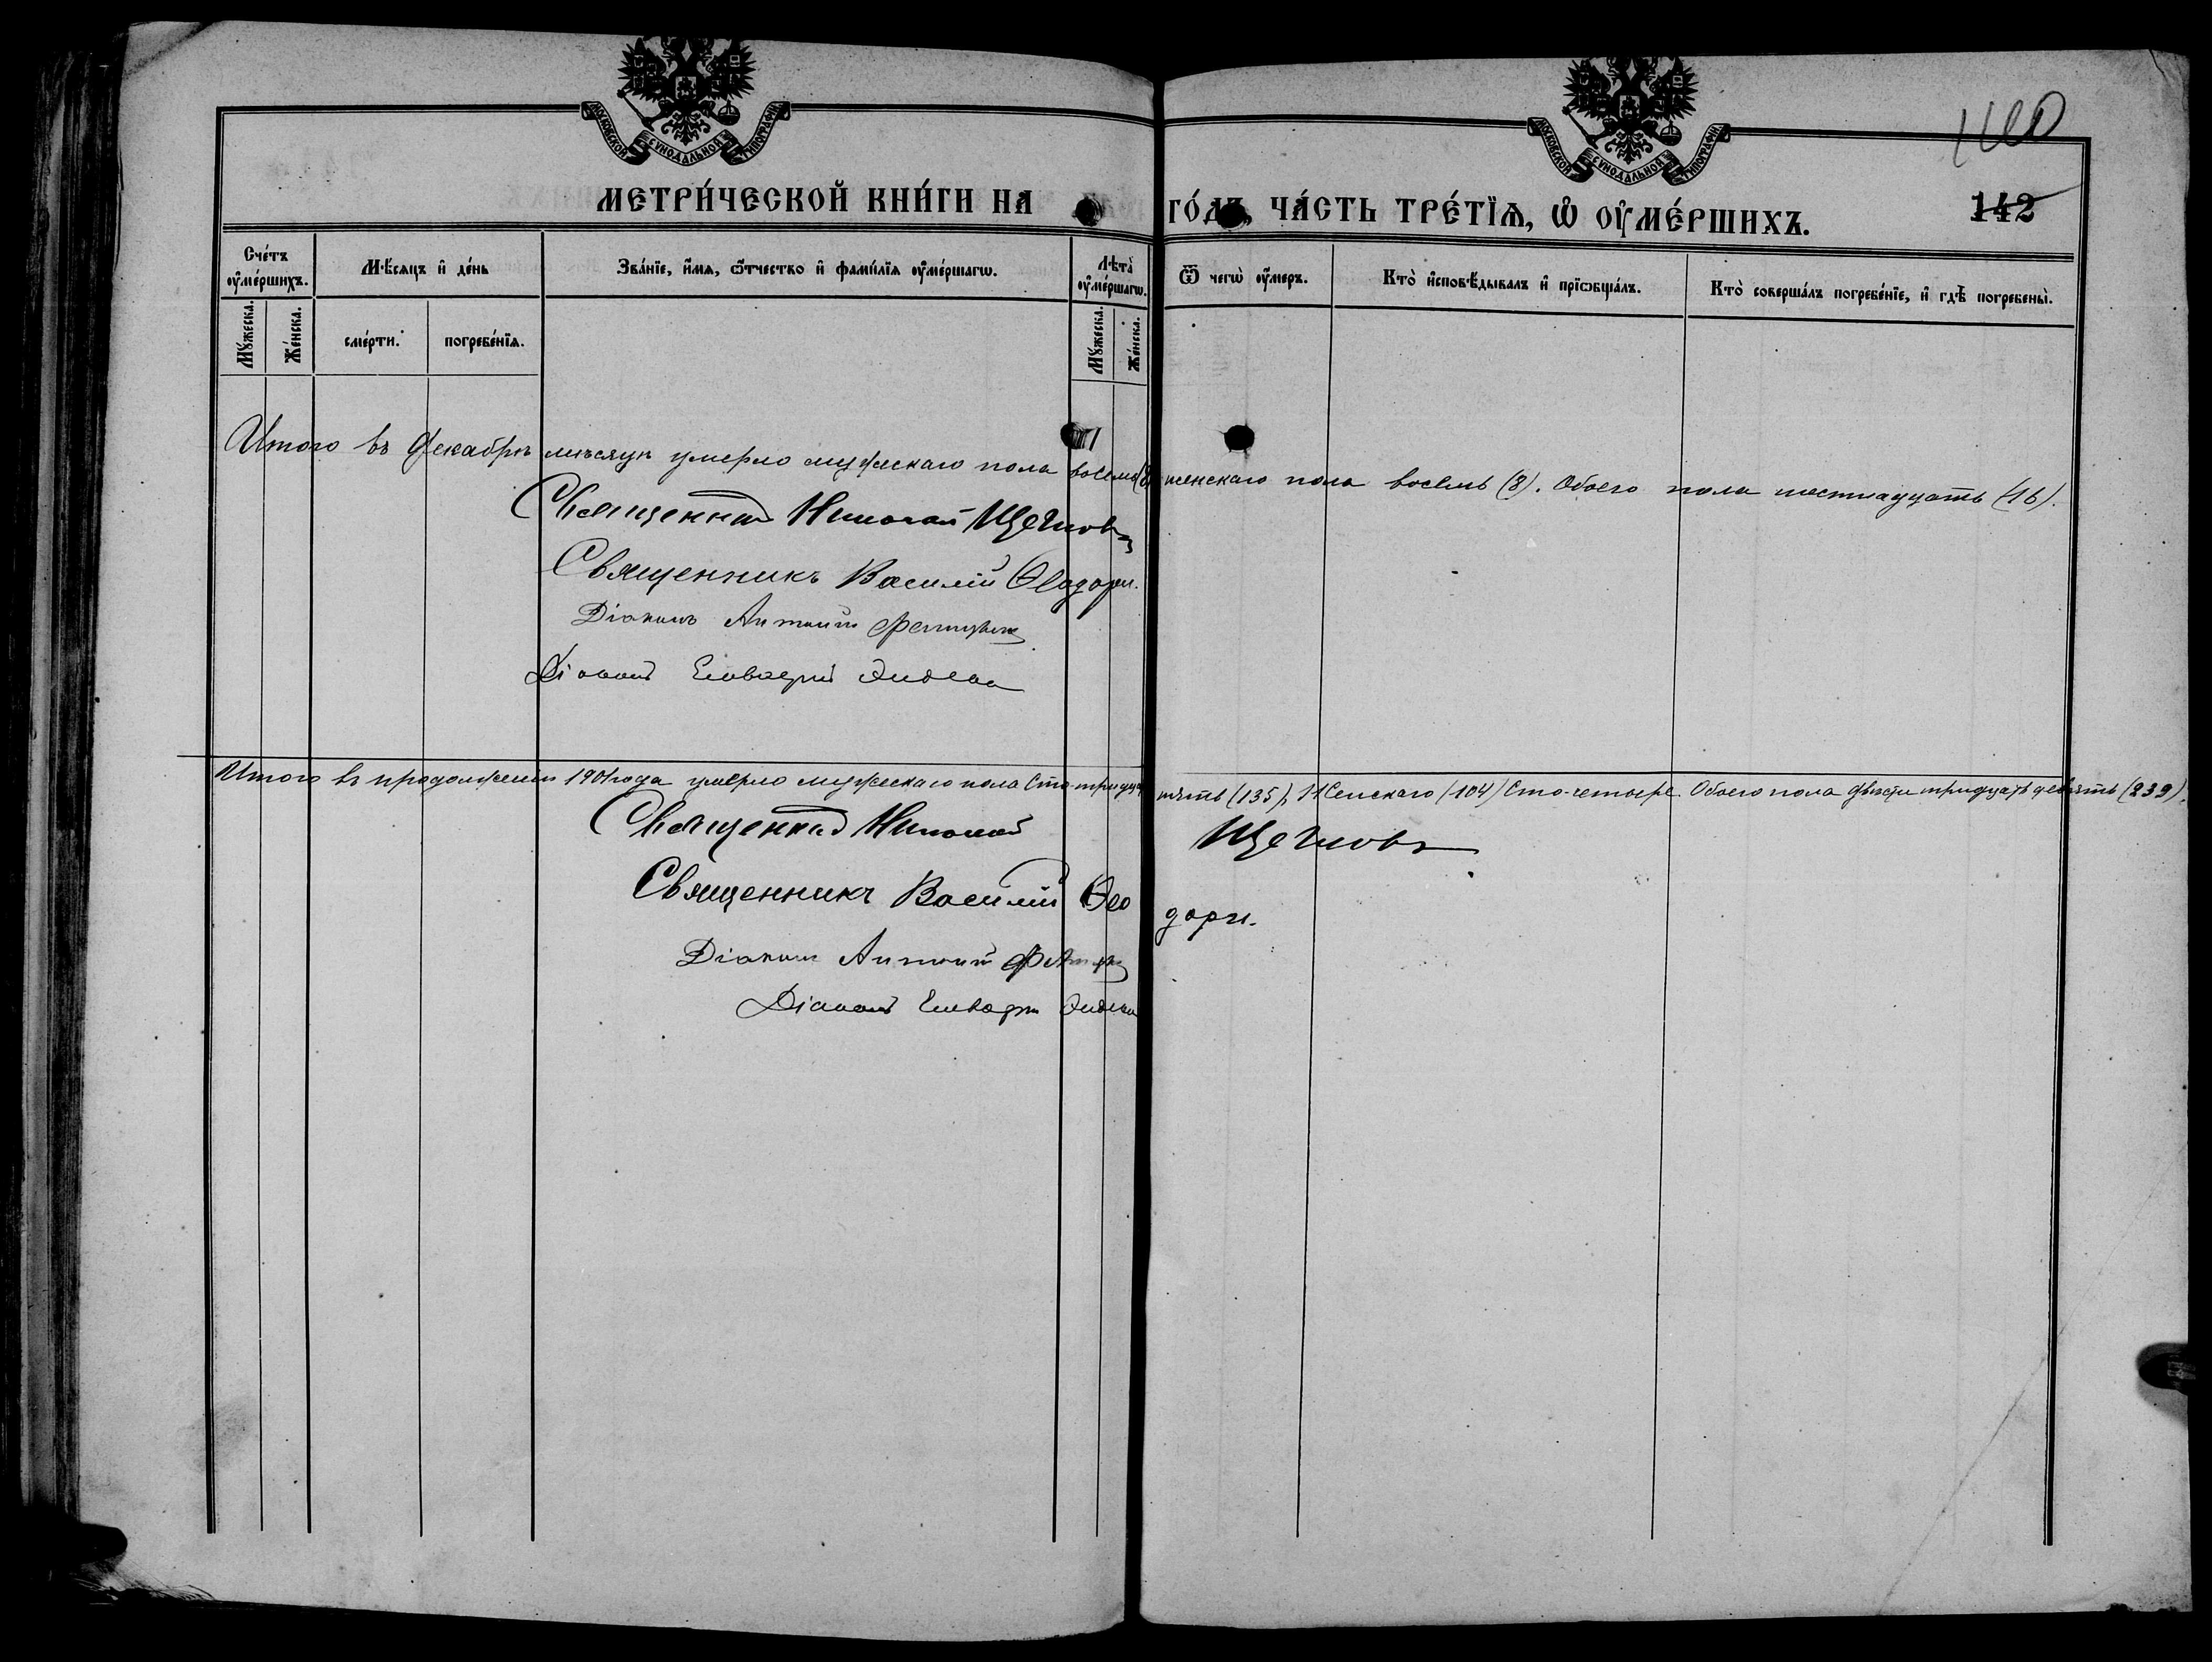 МОСКОВСКОЙ СѴНОДАЛЬНОЙ ТИПОГРАФІИ
МОСКОВСКОЙ СѴНОДАЛЬНОЙ ТИПОГРАФІИ
МЕТРИ́ЧЕСКОЙ КНИ́ГИ НА ГО́ДЪ, ЧА́СТЬ ТРЕ́ТІѦ, Ѽ ОУ҆МЕ́РШИХЪ.
142
Сче́тъ оу҆ме́ршихъ.
Мѣ́сяцъ и҆ де́нь
Зва́нїе, и҆́мя, ѻ҆́тчество и҆ фами́лїя оу҆ме́ршагѡ.
Лѣта̀ оу҆ме́ршагѡ.
Ѿ чегѡ̀ оу҆́меръ.
Кто̀ и҆сповѣ́дывалъ и҆ прїѡбща́лъ.
Кто̀ соверша́лъ погребе́нїе, и҆ гдѣ̀ погребены̀.
Мꙋ́жеска.
Же́нска.
сме́рти.
погребе́нїя.
Мꙋ́жеска.
Же́нска.
Итого въ Декабрѣ мѣсяцѣ умерло мужескаго пола восемь (8) женскаго пола восемь (8). Обоего пола шестнадцать (16).
Священникъ Николай Щегловъ
Священникъ Василій Ѳеодори.
Діаконъ Антоній
Діаконъ
Итого въ продолженіи 1901 года умерло мужескаго пола Сто-тридцать пять (135), Женскаго (104) Сто-четыре. Обоего пола двѣсти тридцать девять (239).
Священникъ Николай Щегловъ
Священникъ Василій Ѳеодори.
Діаконъ Антоній
Діаконъ